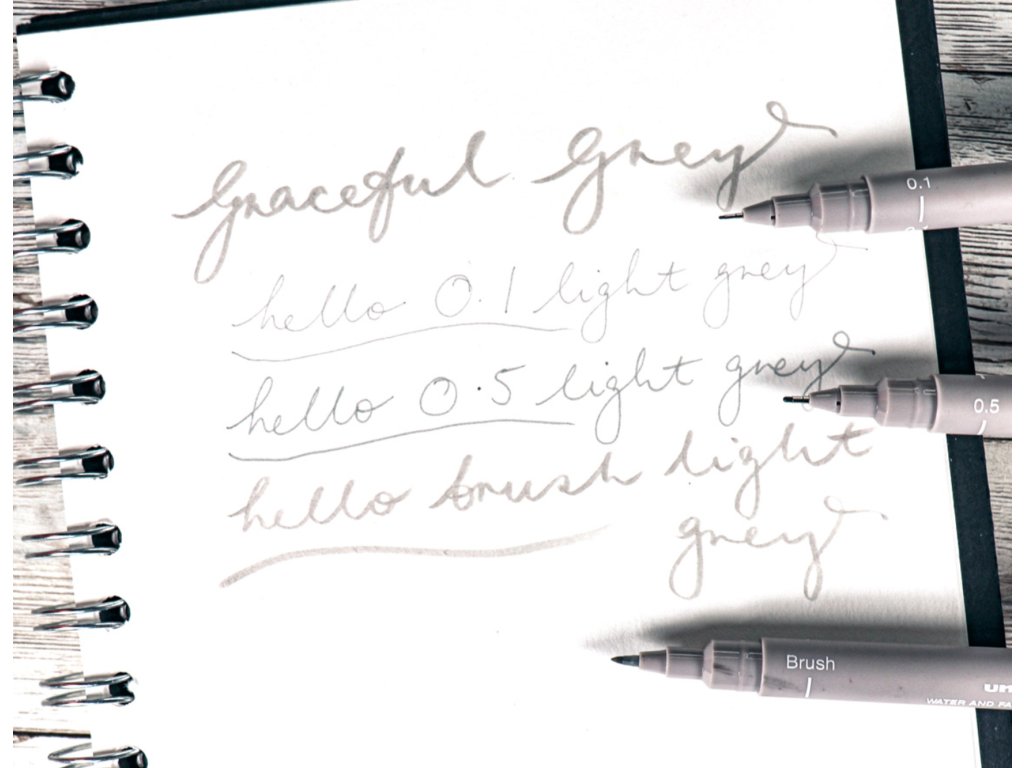 Graceful Grey
0.1
hello 0.1 light grey
hello 0.5 light grey
0.5
hello brush light
grey
Brush
WATER AND